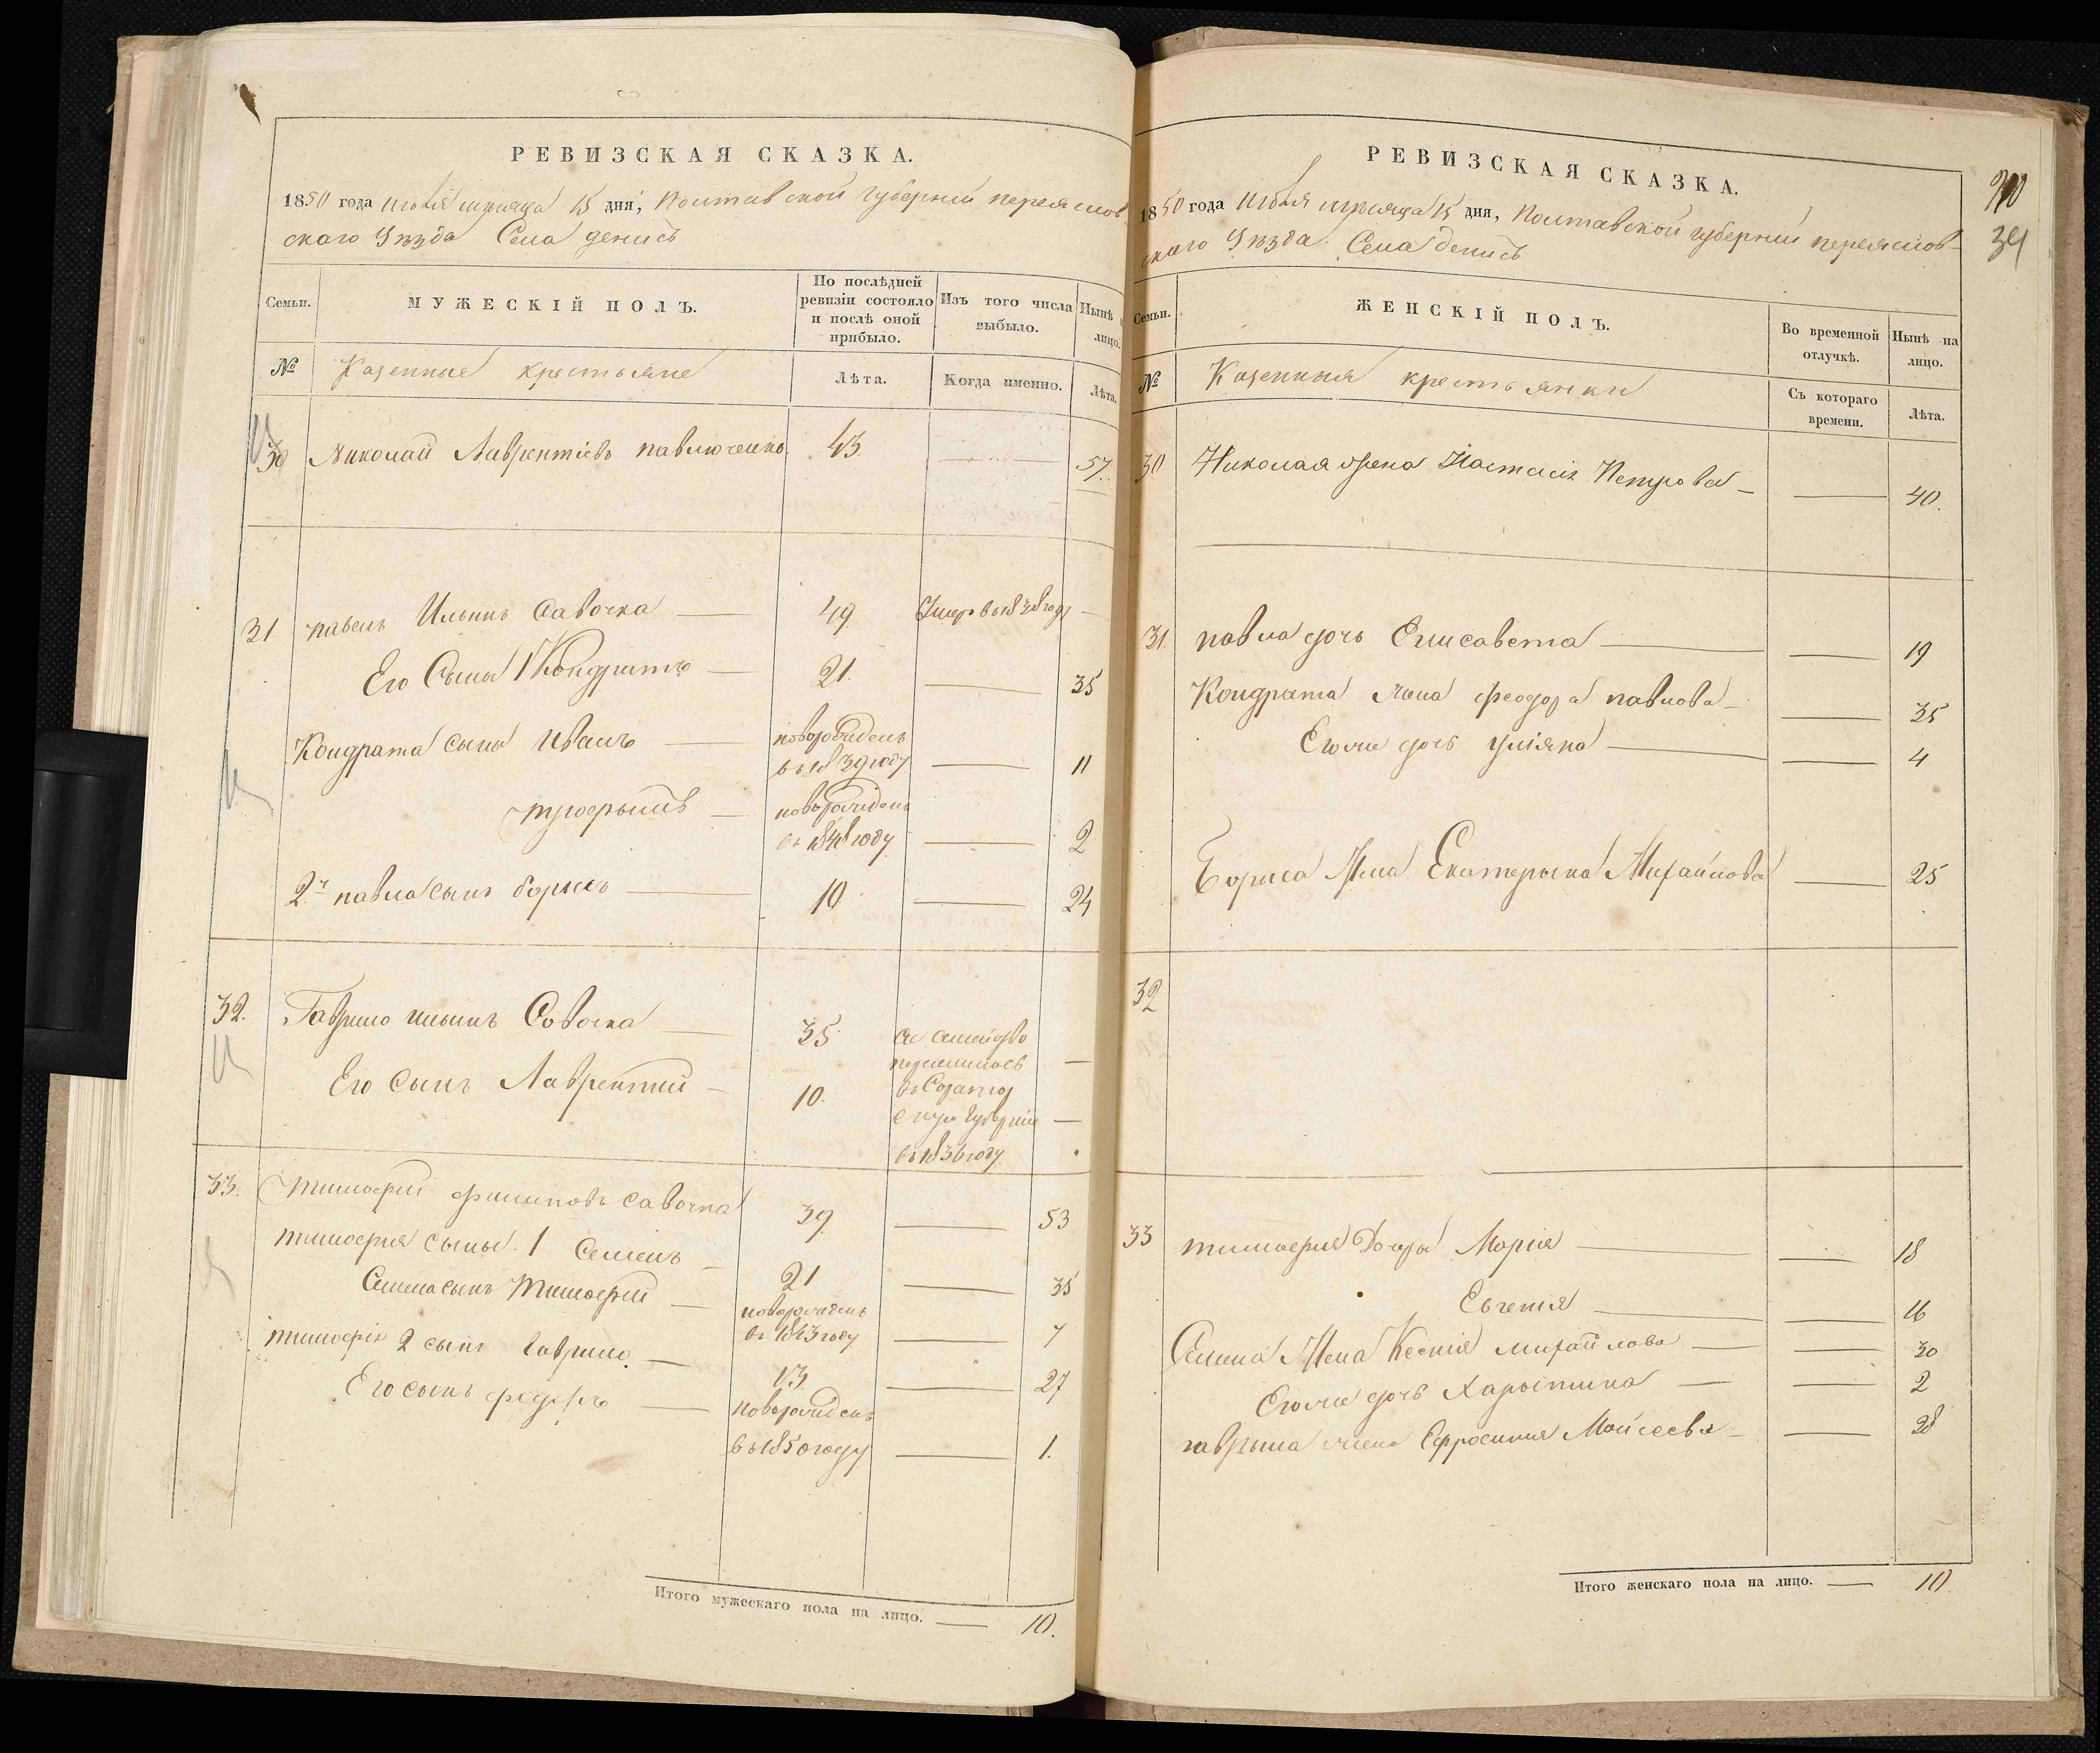 РЕВИЗСКАЯ СКАЗКА.
1850 года июля месяца 15 дня, Полтавской губернии переяслов-
скаго Уѣзда Села денисъ
Семьи.
МУЖЕСКІЙ ПОЛЪ.
По послѣдней ревизіи состояло и послѣ оной прибыло.
Изъ того числа выбыло.
Нынѣ лицо.
№
Казенные крестьяне
Лѣта.
Когда именно.
Лѣта.
30 Николай Лаврентіевъ павлюченко 43 57.
31 павелъ Ильинъ Савочка 49 Умеръ в 1838 году
Его Сыны 1 Кондратъ 21. 35
Кондрата сыны Иванъ новорожденъ
в 1839 году 11
новорожденъ
въ 1848 году 2
2й павла сынъ борисъ 10. 24
32. Гаврило ильинъ Совочка 35 семейство
Его Сынъ Лаврентий 10.
губернію
въ 1836 году
33. тимофій филиповъ савочка 39 53
тимофия сыны 1 Семенъ 21 35
Семена сынъ Тимофій новорожденъ
въ 1843 году 7
тимофія 2 сынъ гаврило 13 27
Его сынъ федоръ новорожденъ
в 1850 году 1.
Итого мужескаго пола на лицо. 10.
РЕВИЗСКАЯ СКАЗКА.
1850 года июля месяца 15 дня, Полтавской губернии переяслов-
скаго Уѣзда Села денисъ
34
Семьи.
ЖЕНСКІЙ ПОЛЪ.
Во временной отлучкѣ.
Нынѣ на лицо.
№
Казенныя крестьянки
Съ котораго времени.
Лѣта.
30 Николая жена Настасія Петрова 40.
31. павла дочь Елисавета 19
Кондрата жена феодора павлова 35
Егоже дочь уліяна 4
Бориса жена Екатерына Михайлова 25
32
33 тимофия Дочеры Мария 18
Евгения 16
Семена Жена Ксения михайлова 30
Егоже дочь Харытина 2
гаврыла жена Ефросиния Мойсеева 28
Итого женскаго пола на лицо. 10.